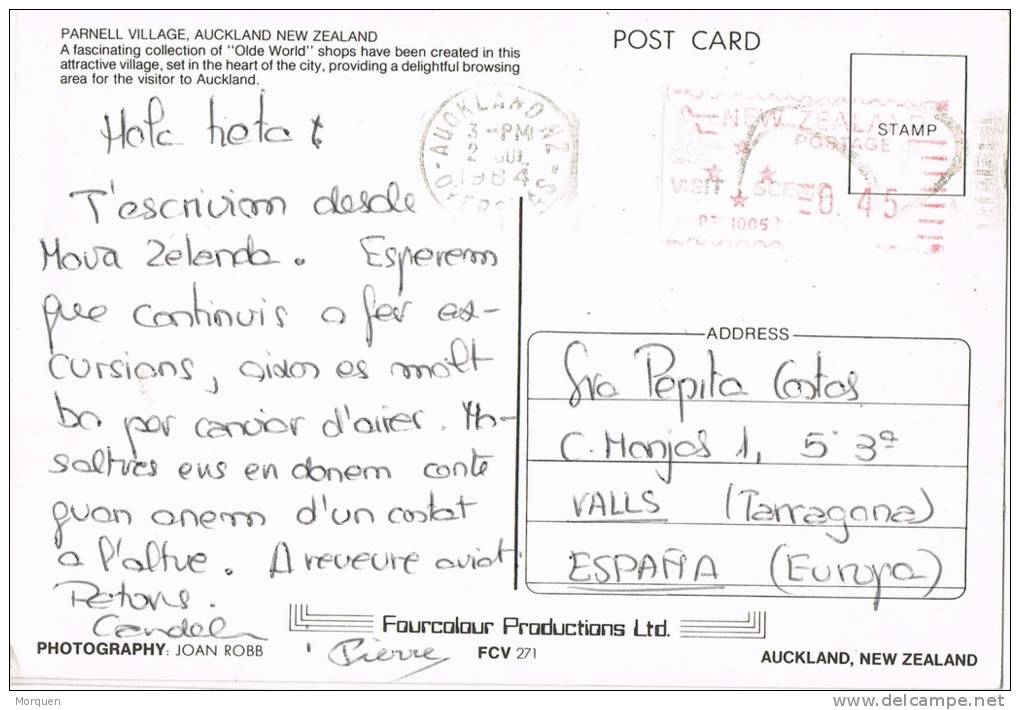 PARNELL VILLAGE, AUCKLAND NEW ZEALAND
A fascinating collection of "Olde World" shops have been created in this
attractive village, set in the heart of the city, providing a delightful browsing
area for the visitor to Auckland.
POST CARD
STAMP
AUCKLAND N.Z.
3-PM
2 JUL
1984
NEW ZEALAND
POSTAGE
VISIT
0.45
Hola tieta
T'escrivim desde
Nova Zelanda. Esperem
que continuis a fer es-
cursions, aidos es molt
bo per canviar d'aires. No-
saltres ens en donem conte
quan anem d'un costat
a l'altre. A reveure aviat.
Petons.
Pierre
ADDRESS
Sra Pepita Costas
C. Monjos 1, 5º 3ª
VALLS (Tarragona)
ESPAÑA (Europa)
Fourcolour Productions Ltd.
PHOTOGRAPHY: JOAN ROBB
FCV 271
AUCKLAND, NEW ZEALAND
Morquen
http://www.delcampe.net